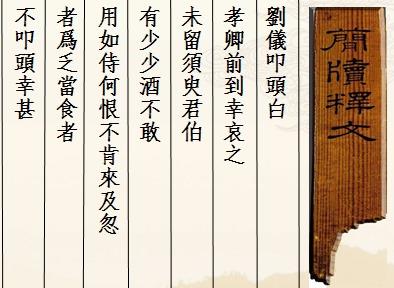 簡牘釋文
劉儀叩頭白
孝卿前到幸哀之
未留須臾君伯
有少少酒不敢
用如侍何恨不肯來及忽
者爲乏當食者
不叩頭幸甚